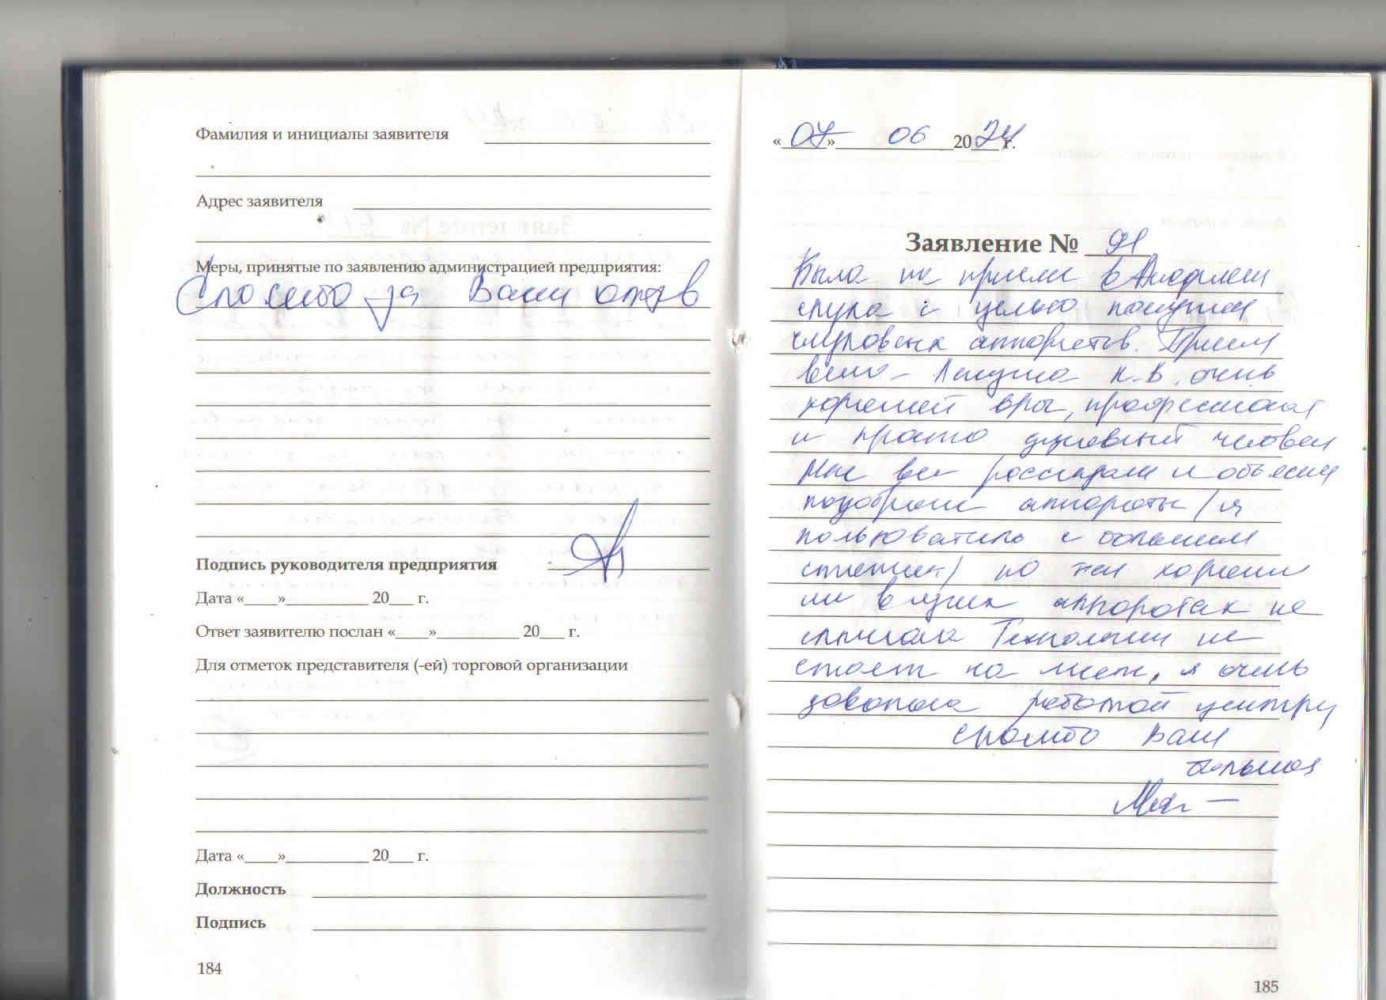 Фамилия и инициалы заявителя
Адрес заявителя
Меры, принятые по заявлению администрацией предприятия:
Спасибо за Ваш отзыв
Подпись руководителя предприятия
Дата «____»__________ 20___ г.
Ответ заявителю послан «____»__________ 20___ г.
Для отметок представителя (-ей) торговой организации
Дата «____»__________ 20___ г.
Должность
Подпись
184
«07» 06 2024 г.
Заявление № 91
Была на приеме в
слуха с целью
слуховых аппаратов. Прием
вела К.В. очень
хороший врач, профессионал
и просто душевный человек
Мне все рассказали и объяснили
подобрали аппараты (я
пользователь с большим
) но так хорошо
ни в одних аппаратах не
слышала Технологии не
стоят на месте, я очень
довольна работой центра
спасибо Вам
большое
185